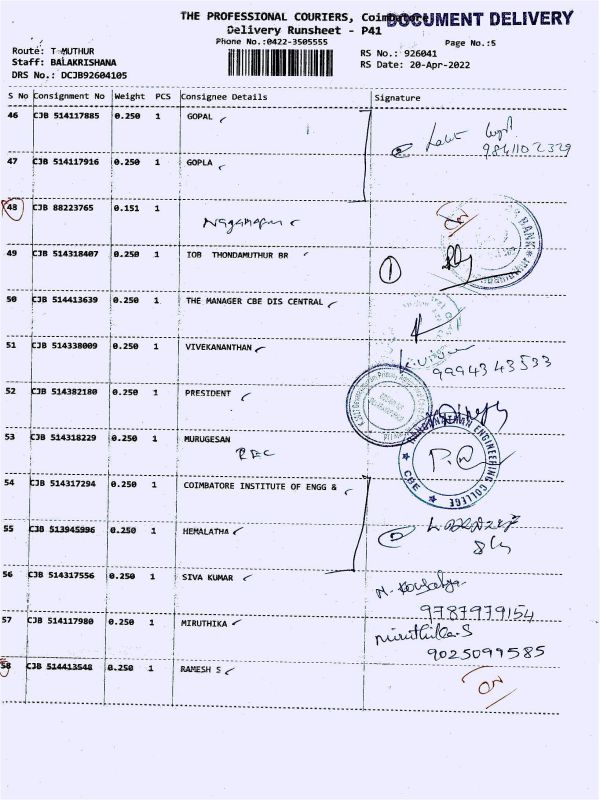 THE PROFESSIONAL COURIERS, Coimbatore
DOCUMENT DELIVERY
Delivery Runsheet - P41
Phone No.:0422-3505555
Page No.:5
Route: T MUTHUR
RS No.: 926041
Staff: BALAKRISHANA
RS Date: 20-Apr-2022
DRS No.: DCJB92604105
S No Consignment No Weight PCS Consignee Details Signature
46 CJB 514117885 0.250 1 GOPAL
47 CJB 514117916 0.250 1 GOPLA
48 CJB 88223765 0.151 1
49 CJB 514318407 0.250 1 IOB THONDAMUTHUR BR
1
50 CJB 514413639 0.250 1 THE MANAGER CBE DIS CENTRAL
51 CJB 514338009 0.250 1 VIVEKANANTHAN
9994343533
52 CJB 514382180 0.250 1 PRESIDENT
53 CJB 514318229 0.250 1 MURUGESAN
ENGINEERING COLLEGE
CBE
54 CJB 514317294 0.250 1 COIMBATORE INSTITUTE OF ENGG &
55 CJB 513945996 0.250 1 HEMALATHA
56 CJB 514317556 0.250 1 SIVA KUMAR
9787979154
57 CJB 514117980 0.250 1 MIRUTHIKA
Miruthika.S
9025099585
58 CJB 514413548 0.250 1 RAMESH S